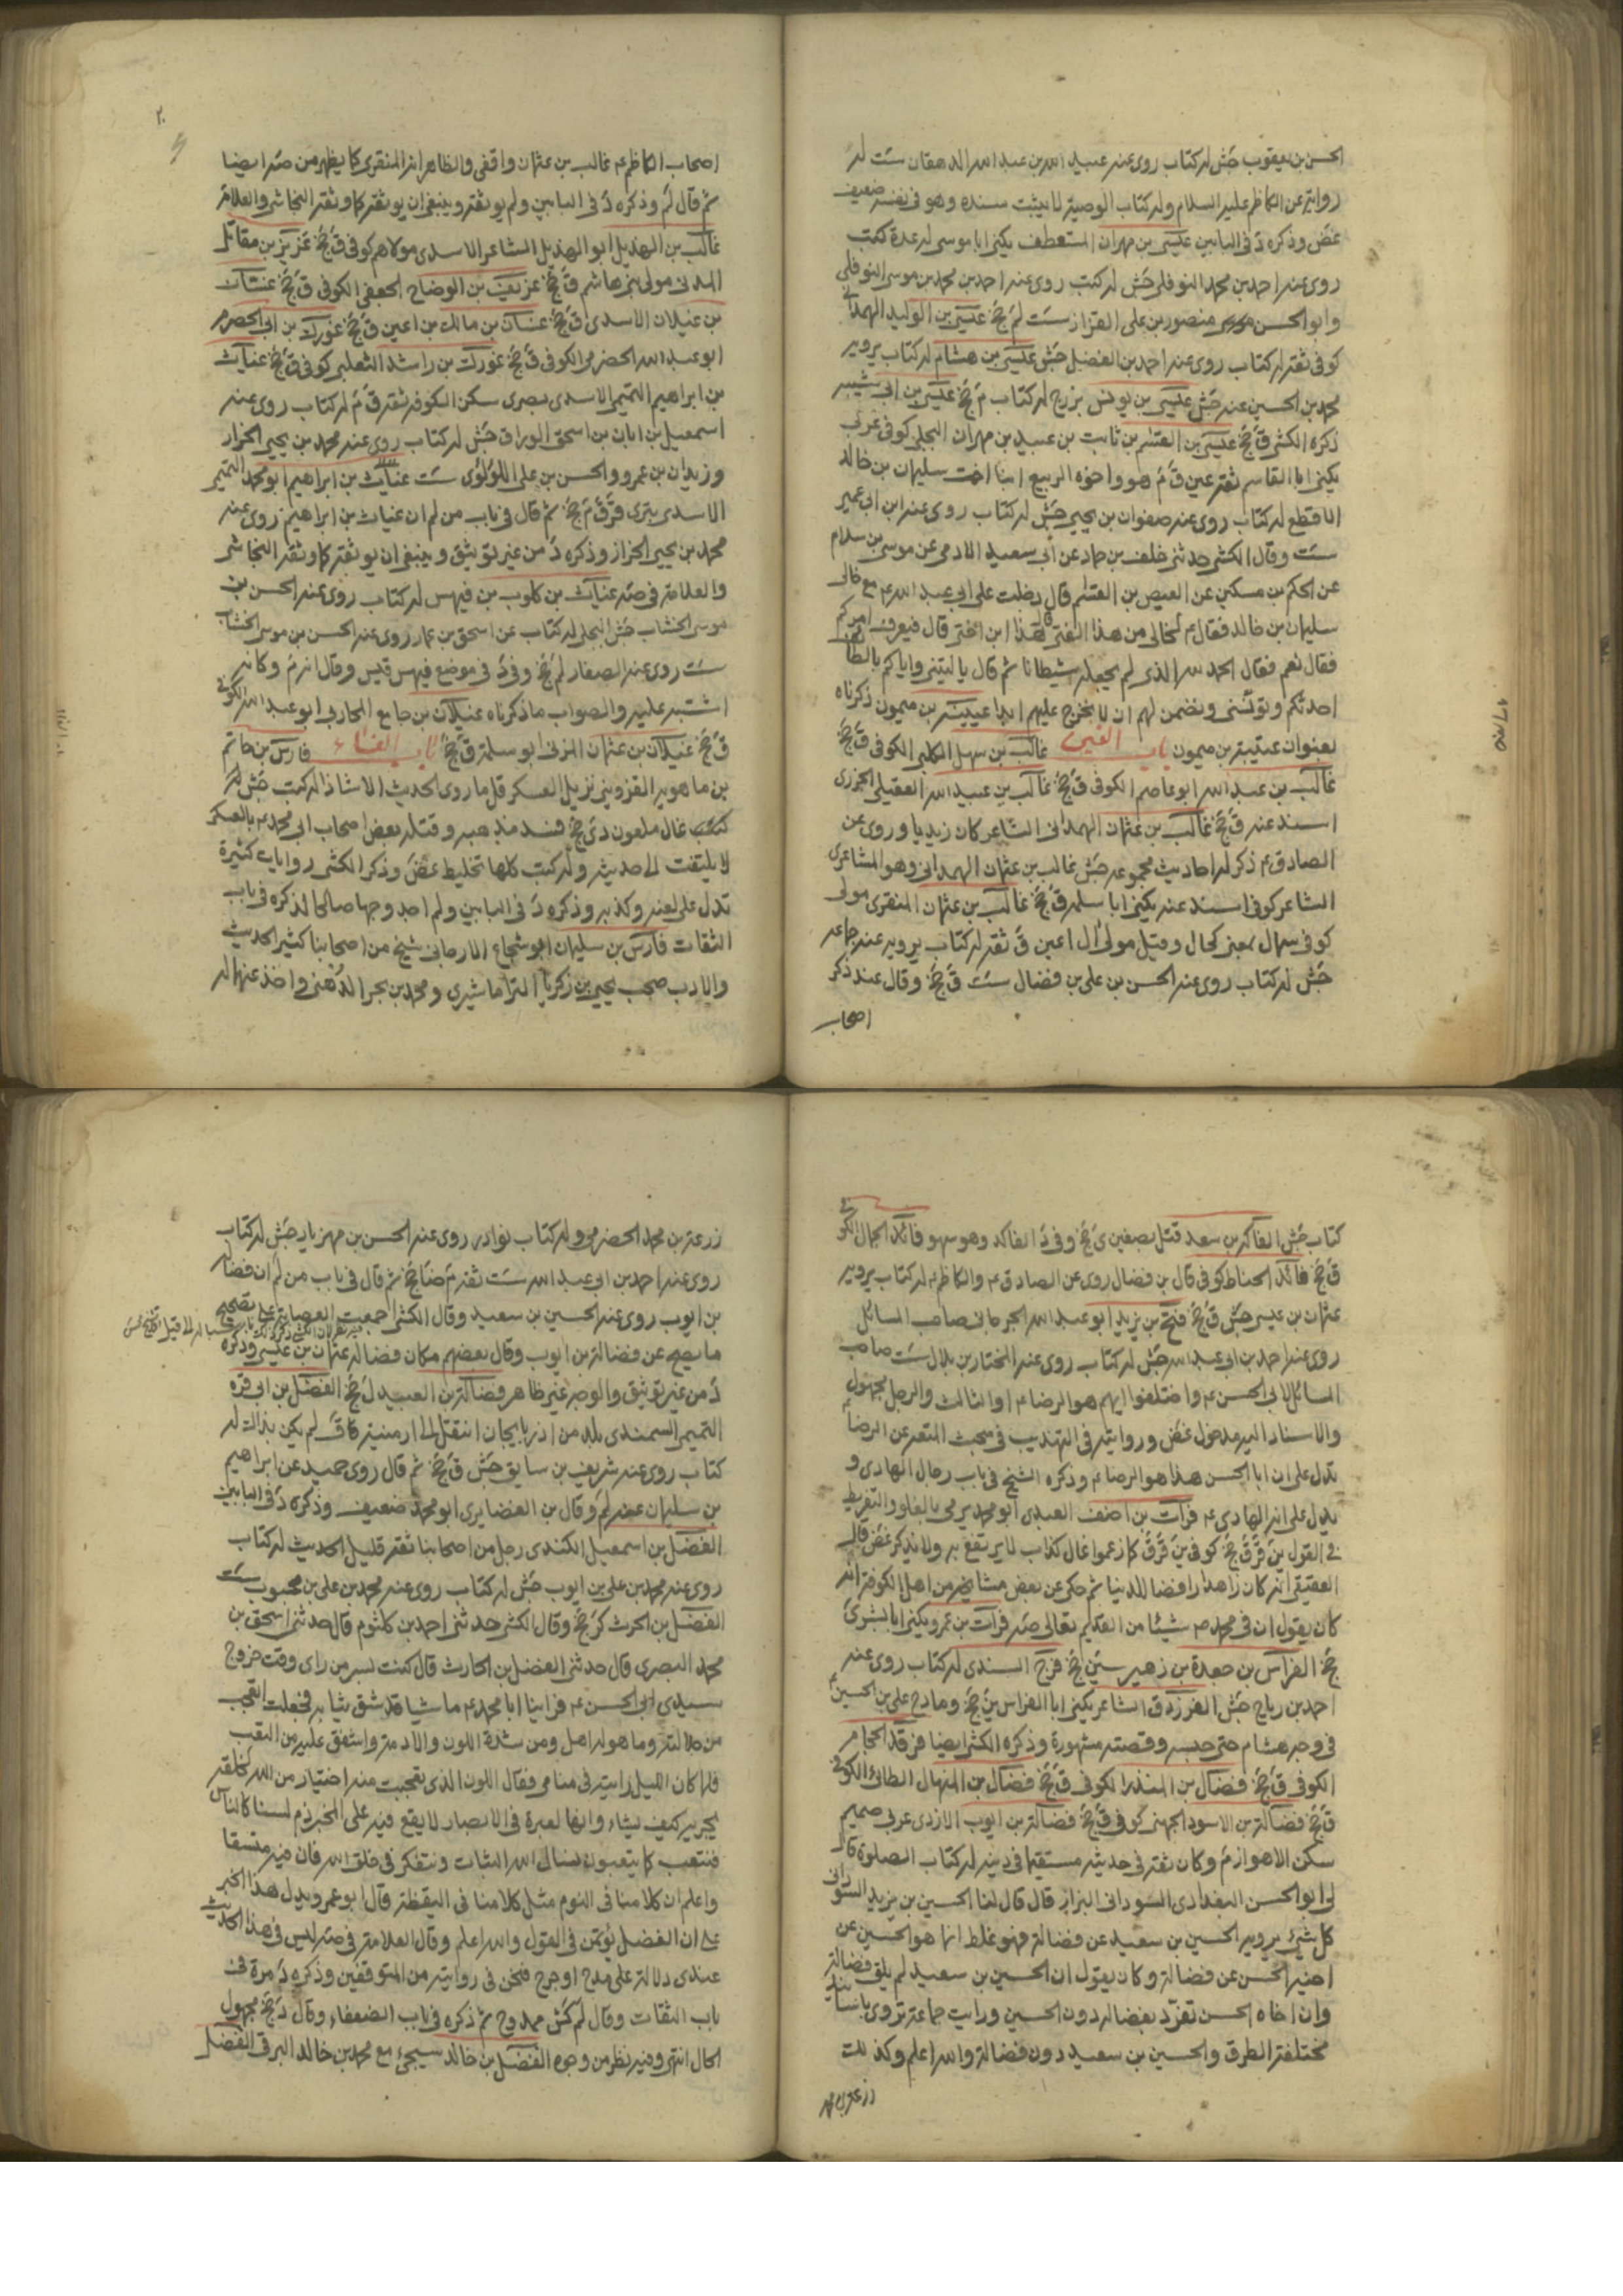 الحسن بن يعقوب جش له كتاب روى عنه عبيد الله بن عبد الله الدهقان ست له
رواية عن الكاظم عليه السلام وله كتاب الوصية لا يثبت سنده وهو في نفسه ضعيف
غض وذكره د في البابين عيسى بن مهران المستعطف يكنى ابا موسى له عدة كتب
روى عنه احمد بن محمد النوفلي جش له كتب روى عنه احمد بن محمد بن موسى النوفلي
وابو الحسن منصور بن علي القزاز ست لم جخ عيسى بن الوليد الهمداني
كوفي ثقة له كتاب روى عنه احمد بن الفضل جش عيسى بن هشام له كتاب يرويه
محمد بن الحسين عنه جش عيسى بن يونس بزرج له كتاب م جخ عيسى بن ابي شيبه
ذكره الكشي ق جخ عيص بن القسم بن ثابت بن عبيد بن مهران البجلي كوفي عربي
يكنى ابا القاسم ثقة عين ق م هو واخوه الربيع ابنا اخت سليمان بن خالد
الاقطع له كتاب روى عنه صفوان بن يحيى جش له كتاب روى عنه ابن ابي عمير
ست وقال الكشي حدثني خلف بن حماد عن ابي سعيد الادمي عن موسى بن سلام
عن الحكم بن مسكين عن العيص بن القسم قال دخلت على ابي عبد الله ع مع خالي
سليمان بن خالد فقال ع لخالي من هذا الفتى قال هذا ابن اختي قال فيعرف امركم
فقال نعم فقال الحمد لله الذي لم يجعله شيطانا ثم قال يا ليتني واياكم بالطائف
احدثكم وتؤنسني ونضمن لهم ان لا نخرج عليهم ابدا عيينة بن ميمون ذكرناه
بعنوان عتيبة بن ميمون باب الغين غالب بن سهل الكلبي الكوفي ق جخ
غالب بن عبد الله ابو عاصم الكوفي ق جخ غالب بن عبيد الله العقيلي الجزري
اسند عنه ق جخ غالب بن عثمان الهمداني الشاعر كان زيديا وروى عن
الصادق ع ذكر له احاديث مجموعه جش غالب بن عثمان الهمداني وهو المشاعرى
الشاعر كوفي اسند عنه يكنى ابا سلمه ق جخ غالب بن عثمان المنقري مولى
كوفي سمال بمعنى كحال وقيل مولى ال اعين ق ثقة له كتاب يرويه عنه جماعه
جش له كتاب روى عنه الحسن بن علي بن فضال ست ق جخ وقال عند ذكر
اصحاب
٢٠
اصحاب الكاظم ع غالب بن عثمان واقفي والظاهر انه المنقري كما يظهر من صه ايضا
ثم قال لم وذكره د في البابين ولم يوثقه وينبغي ان يوثقه كما وثقه النجاشي والعلامة
غالب بن الهذيل ابو الهذيل الشاعر الاسدي مولاهم كوفي ق جخ غزيز بن مقاتل
المدني مولى بني هاشم ق جخ غزيف بن الوضاح الجعفي الكوفي ق جخ غسان
بن غيلان الاسدي ق جخ غسان بن مالك بن اعين ق جخ غورك بن ابي الحضرم
ابو عبد الله الحضرمي الكوفي ق جخ غورك بن راشد الثعلبي كوفي ق جخ غياث
بن ابراهيم التميمي الاسدي بصري سكن الكوفة ثقة ق م له كتاب روى عنه
اسمعيل بن ابان بن اسحق الوراق جش له كتاب روى عنه محمد بن يحيى الخزاز
وزيدان بن عمرو والحسن بن علي اللؤلؤي ست غياث بن ابراهيم ابو محمد التميمي
الاسدي بتري قر ق م جخ ثم قال في باب من لم ان غياث بن ابراهيم روى عنه
محمد بن يحيى الخزاز وذكره د من غير توثيق وينبغي ان يوثقه كما وثقه النجاشي
والعلامة في صه غياث بن كلوب بن فيهس له كتاب روى عنه الحسن بن
موسى الخشاب جش البجلي له كتاب عن اسحق بن عمار روى عنه الحسن بن موسى الخشاب
ست روى عنه الصفار لم جخ وفي د في موضع فيهس قيس وقال انه م وكانه
اشتبه عليه والصواب ما ذكرناه غيلان بن جامع المحاربي ابو عبد الله الكوفي
ق جخ غيلان بن عثمان المزني ابو سلمة ق جخ باب الفاء فارس بن حاتم
بن ماهويه القزويني نزيل العسكر قل ما روى الحديث الا شاذا له كتب جش له
كتب غال ملعون دي جخ فسد مذهبه وقتله بعض اصحاب ابي محمد ع بالعسكر
لا يلتفت الى حديثه وله كتب كلها تخليط غض وذكر الكشي روايات كثيرة
تدل على لعنه وكذبه وذكره د في البابين ولم اجد وجها صالحا لذكره في باب
الثقات فارس بن سليمان ابو شجاع الارجاني شيخ من اصحابنا كثير الحديث
والادب صحب يحيى بن زكريا الترماشيري ومحمد بن بحر الدهني واخذ عنهما له
كتاب جش الفاكه بن سعد قتل بصفين ى جخ وفي د الفاكد وهو سهو فائد الجمال الكوفي
ق جخ فائد الحناط كوفي قال بن فضال روى عن الصادق ع والكاظم ع له كتاب يرويه
عثمان بن عيسى جش ق جخ فتح بن يزيد ابو عبد الله الجرجاني صاحب المسائل
روى عنه احمد بن ابي عبد الله جش له كتاب روى عنه المختار بن بلال ست صاحب
المسائل لابي الحسن ع واختلفوا ايهم هو الرضا ع او الثالث والرجل مجهول
والاسناد اليه مدخول غض وروايته في التهذيب في مبحث المتعة عن الرضا ع
يدل على ان ابا الحسن هذا هو الرضا ع وذكره الشيخ في باب رجال الهادي و
يدل على انه الهادي ع فرات بن احنف العبدي ابو محمد يرمى بالغلو والتفريط
في القول ين قر ق جخ كوفي ين قر ق كما زعموا غال كذاب لا يرتفع به ولا يذكر غض قال
العقيقي انه كان زاهدا رافضا للدنيا ثم حكى عن بعض مشايخه من اهل الكوفة انه
كان يقول ان في محمد ص شيئا من القديم تعالى صه فرات بن عمر ويكنى ابا بشرى
جخ الفراس بن جعدة بن زهير سين جخ فرج السندي له كتاب روى عنه
احمد بن رباح جش الفرزدق الشاعر يكنى ابا الفراس ين جخ وهادح علي بن الحسين ع
في وجه هشام حتى حبسه وقصته مشهورة وذكره الكشي ايضا فرقد الحجام
الكوفي ق جخ فضال بن المنذر الكوفي ق جخ فضال بن المنهال الطائي الكوفي
ق جخ فضالة بن الاسود الجهني كوفي ق جخ فضالة بن ايوب الازدي عربي صميم
سكن الاهواز م وكان ثقة في حديثه مستقيما في دينه له كتاب الصلوة قال
لي ابو الحسن البغدادي السوداني البزاز قال قال لنا الحسين بن يزيد السوراني
كل شيء يرويه الحسين بن سعيد عن فضالة فهو غلط انما هو الحسين عن
اخيه الحسن عن فضالة وكان يقول ان الحسين بن سعيد لم يلق فضالة
وان اخاه الحسن تفرد بفضالة دون الحسين ورايت جماعة تروي باسانيد
مختلفة الطرق والحسين بن سعيد دون فضالة والله اعلم وكذلك
زرعة بن محمد
زرعة بن محمد الحضرمي وله كتاب نوادر روى عنه الحسن بن مهزيار جش له كتاب
روى عنه احمد بن ابي عبد الله ست ثقة م ضا جخ ثم قال في باب من لم ان فضالة
بن ايوب روى عنه الحسين بن سعيد وقال الكشي اجمعت العصابة على تصحيح
ما يصح عن فضالة بن ايوب وقال بعضهم مكان فضالة عثمان بن عيسى وذكره
د من غير توثيق والوجه غير ظاهر فضالة بن العبيد ل جخ الفضل بن ابي قره
التميمي السمندي بلد من اذربايجان انتقل الى ارمنية كا ق لم يكن بذالك له
كتاب روى عنه شريف بن سابق جش ق جخ ثم قال روى حميد عن ابراهيم
بن سليمان عنه لم وقال بن الغضايري ابو محمد ضعيف وذكره د في البابين
الفضل بن اسمعيل الكندي رجل من اصحابنا ثقة قليل الحديث له كتاب
روى عنه محمد بن علي بن ايوب جش له كتاب روى عنه محمد بن علي بن محبوب ست
الفضل بن الحرث كر جخ وقال الكشي حدثني احمد بن كلثوم قال حدثني اسحق بن
محمد البصري قال حدثني الفضل بن الحارث قال كنت بسر من راى وقت خروج
سيدي ابي الحسن ع فراينا ابا محمد ع ماشيا قد شق ثيابه فجعلت اتعجب
من جلالته وما هو له اهل ومن شدة اللون والادمة واشفق عليه من التعب
فلما كان الليل رايته في منامي فقال اللون الذي تعجبت منه اختيار من الله لخلقه
يجريه كيف يشاء وانها لعبرة في الابصار لا يقع فيه على المختبر ذم لسنا كالناس
فنتعب كما يتعبون نسال الله الثبات ونتفكر في خلق الله فان فيه متسعا
واعلم ان كلامنا في النوم مثل كلامنا في اليقظة قال ابو عمرو ويدل هذا الخبر
على ان الفضل يؤتمن في القول والله اعلم وقال العلامة في صه ليس في هذا الحديث
عندي دلالة على مدح او جرح فنحن في روايته من المتوقفين وذكره د مرة في
باب الثقات وقال لم كش ممدوح ثم ذكره في باب الضعفاء وقال د جخ مجهول
الحال انتهى وفيه نظر من وجوه الفضل بن خالد سيجئ مع محمد بن خالد البرقي الفضل